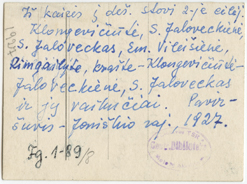 Iš kairės į deš. stovi 2-je eilėj:
Klongevičiūtė, S. Jaloveckienė,
S. Jaloveckas, Em. Vileišienė,
Rimgailytė, krašte - Klongevičiūtė-
Jaloveckienė, S. Jaloveckas
ir jų vaikučiai. Pavir-
šuvis - Joniškio raj. 1927.
Fg. 1-89/8